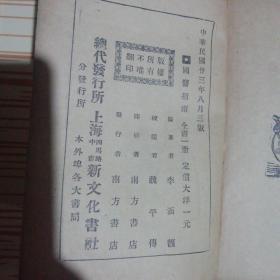 中華民國廿三年八月三版
國醫指南 全書一冊 定價大洋一元
編著者 李
校閱者 魏平傳
印刷者 南方書店
發行者 南方書店
版權所有
不准翻印
總代發行所 上海四馬路中市 新文化書社
分發行所 本外埠各大書局